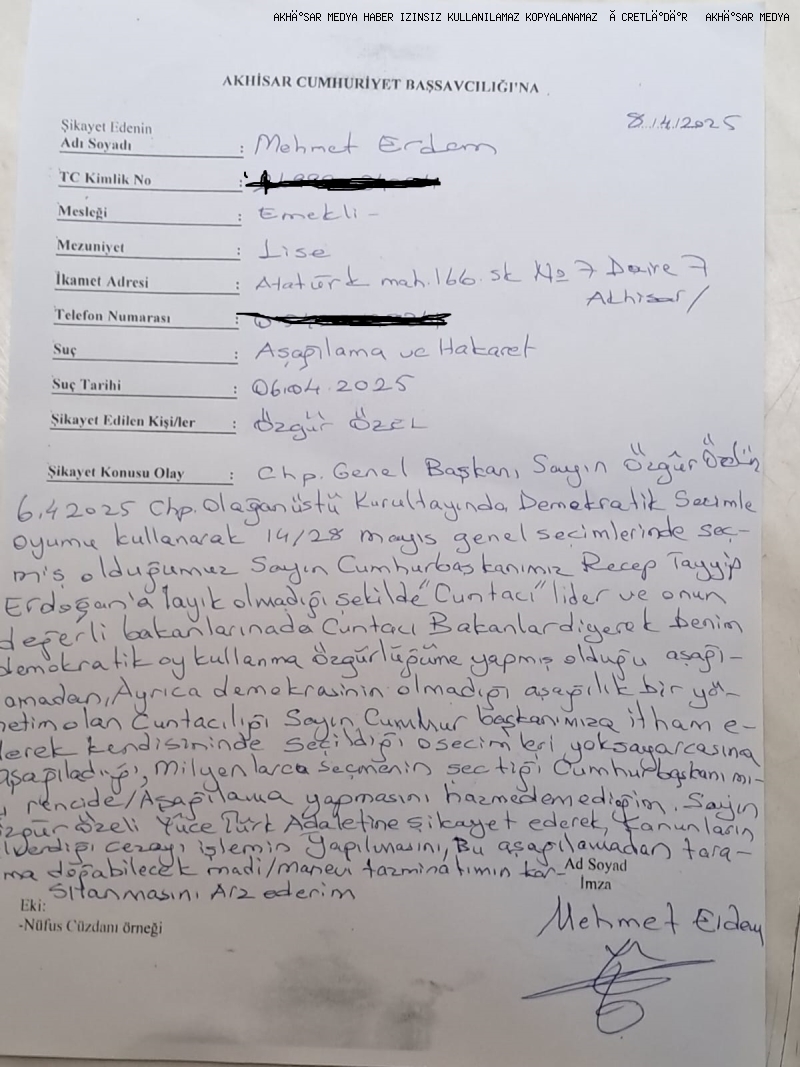 AKHÄ°SAR MEDYA HABER IZINSIZ KULLANILAMAZ KOPYALANAMAZ Ã CRETLÄ°DÄ°R AKHÄ°SAR MEDYA
AKHİSAR CUMHURİYET BAŞSAVCILIĞI'NA
8.4.2025
Şikayet Edenin
Adı Soyadı : Mehmet Erdem
TC Kimlik No :
Mesleği : Emekli -
Mezuniyet : Lise
İkamet Adresi : Atatürk mah. 166. sk No 7 Daire 7
Akhisar/
Telefon Numarası :
Suç : Aşağılama ve Hakaret
Suç Tarihi : 06.04.2025
Şikayet Edilen Kişi/ler : Özgür ÖZEL
Şikayet Konusu Olay : Chp. Genel Başkanı Sayın Özgür Özelin
6.4.2025 Chp. Olağanüstü Kurultayında Demokratik Secimle
oyumu kullanarak 14/28 mayıs genel seçimlerinde seç-
miş olduğumuz Sayın Cumhurbaşkanımız Recep Tayyip
Erdoğan'a layık olmadığı şekilde "Cuntacı" lider ve onun
değerli bakanlarınada Cuntacı Bakanlar diyerek benim
demokratik oy kullanma özgürlüğüme yapmış olduğu aşağı-
lamadan, Ayrıca demokrasinin olmadığı aşağılık bir yö-
netim olan Cuntacılığı Sayın Cumhur başkanımıza itham e-
derek kendisininde seçildiği o secimleri yoksayarcasına
aşağıladığı, Milyonlarca seçmenin sectiği Cumhurbaşkanı mı-
rencide/Aşağılama yapmasını hazmedemediğim. Sayın
özgür özeli Yüce Türk Adaletine şikayet ederek, Kanunların
verdiği cezayı işlemin Yapılmasını, Bu aşağılamadan tara-
ma doğabilecek madi/manevi tazminatımın kar-
şılanmasını Arz ederim
Ad Soyad
İmza
Eki:
-Nüfus Cüzdanı örneği
Mehmet Erdem